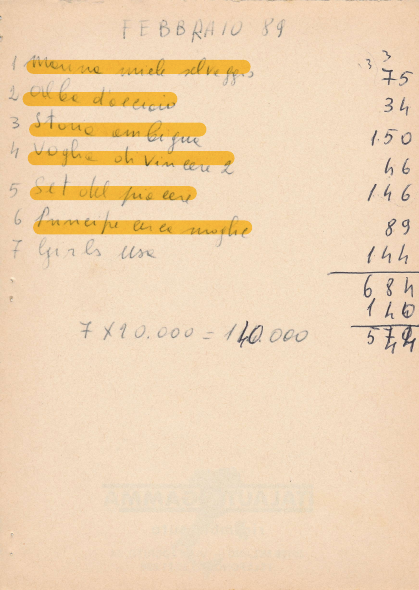 FEBBRAIO 89
3 3
1 Marina miele selvaggio 75
2 Alba d'acciaio 34
3 Storia ambigua 150
4 Voglia di vincere 2 46
5 Set del piacere 146
6 Principe cerca moglie 89
7 Girls USA 144
684
140
7 X 20.000 = 140.000 544